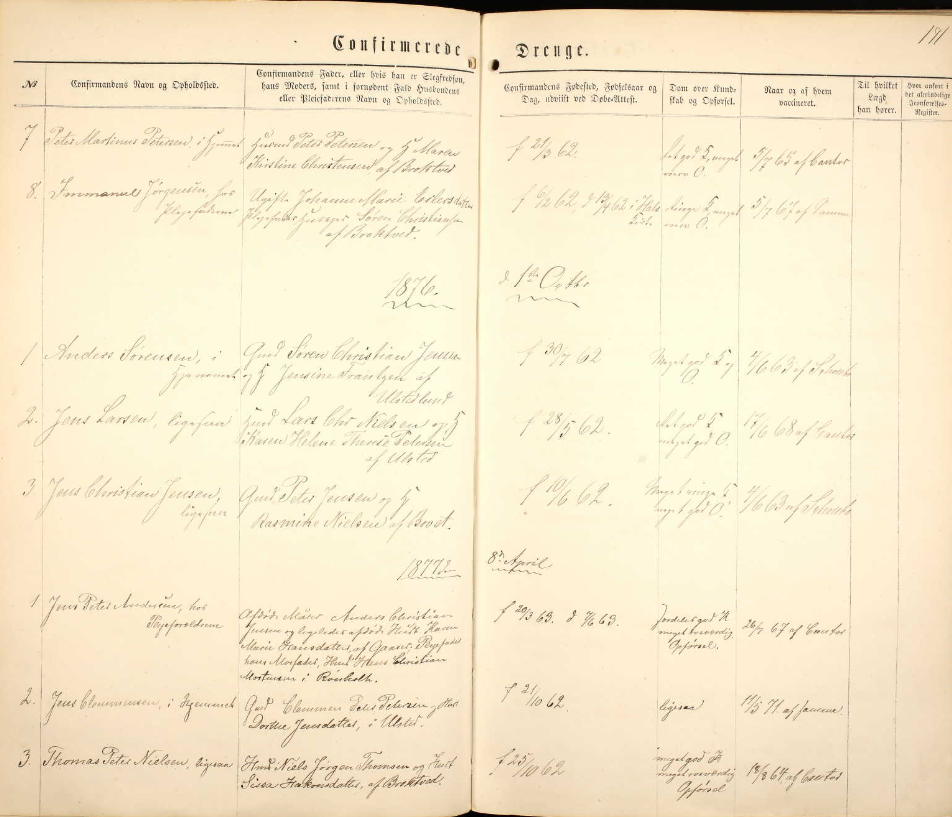 Confirmerede Drenge.
181
№
Confirmandens Navn og Opholdssted.
Confirmandens Fader, eller hvis han er Slegfredsøn,
hans Moders, samt i fornødent Fald Husbondens
eller Pleiefaderens Navn og Opholdssted.
Confirmandens Fødested, Fødselsaar og
Dag, udviist ved Døbe-Attest.
Dom over Kund-
skab og Opførsel.
Naar og af hvem
vaccineret.
Til hvilket
Lægd
han hører.
Hvor anført i
det almindelige
Jevnførelses-
Register.
7 Peter Martinus Petersen, i Hjemmet
Husmd Peter Petersen og H Maren
Kirstine Christensen af Broktved
f 21/3 62.
ret god K, meget
O.
5/7 65 af Cantor
8. Immanuel Jørgensen, hos
Plejefaderen
Ugifte Johanne Marie Eilersdatter
Plejefader Søren Christensen
af Broktved.
f 6/2 62, d i Hals
Kirke
Ringe K, meget
O.
5/7 67 af Samme
1876.
d 1ste Octbr
1 Anders Sørensen, i
Hjemmet
Gmd Søren Christian Jensen
og H Jensine Frantzen af
Ulstedlund
f 30/7 62
Meget god K og
O.
4/6 63 af Schmits
2. Jens Larsen, ligesaa
Lars Chr Nielsen og H
Karen Helene Therese Petersen
af Ulsted
f 28/5 62.
Ret god K
meget god O.
17/6 68 af Cantor
3 Jens Christian Jensen,
ligesaa
Gmd Peter Jensen og H
Rasmine Nielsen af
f 10/6 62.
Meget ringe K
meget god O.
4/6 63 af Schmits
1877
8de April
1 Jens Peter Andersen, hos
Plejeforældrene
Afdøde Anders Christian
Jensen og ligeledes afdøde Hustr Karen
Marie Hansdatter, af Gaaser, Plejefader
hans Morfader, Hmd Hans Christian
Mortensen i Rønholt.
f 20/3 63. d 63.
god K
meget roesværdig
Opførsel.
26/7 67 af Cantor
2. Jens Clemmensen, i Hjemmet
Gmd Clemmen Peter Petersen og
Dorthe Jensdatter, i Ulsted.
f 21/10 62.
ligesaa
11/5 71. af samme
3. Thomas Peter Nielsen, ligesaa
Hmd Niels Jørgen Thomsen og Hust
af Broktved.
f 25/10 62
meget god K
meget roesværdig
Opførsel
18/8 64, af Cantor